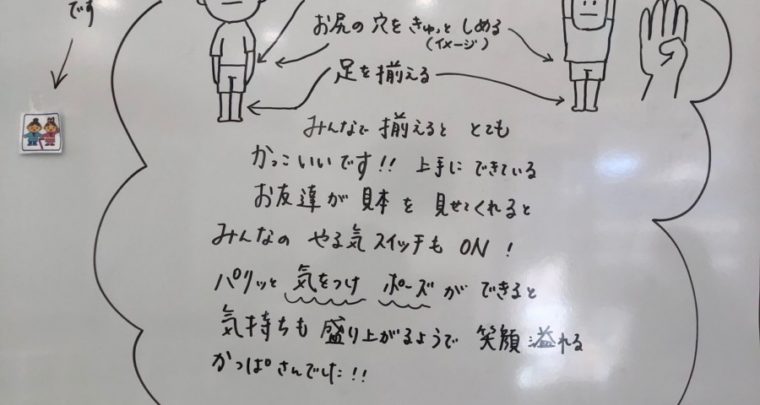 です
お尻の穴をきゅっとしめる
(イメージ)
足を揃える
みんなで揃えるととても
かっこいいです!! 上手にできている
お友達が見本を見せてくれると
みんなのやる気スイッチもON!
パリッと気をつけポーズができると
気持ちも盛り上がるようで笑顔溢れる
かっぱさんでした!!